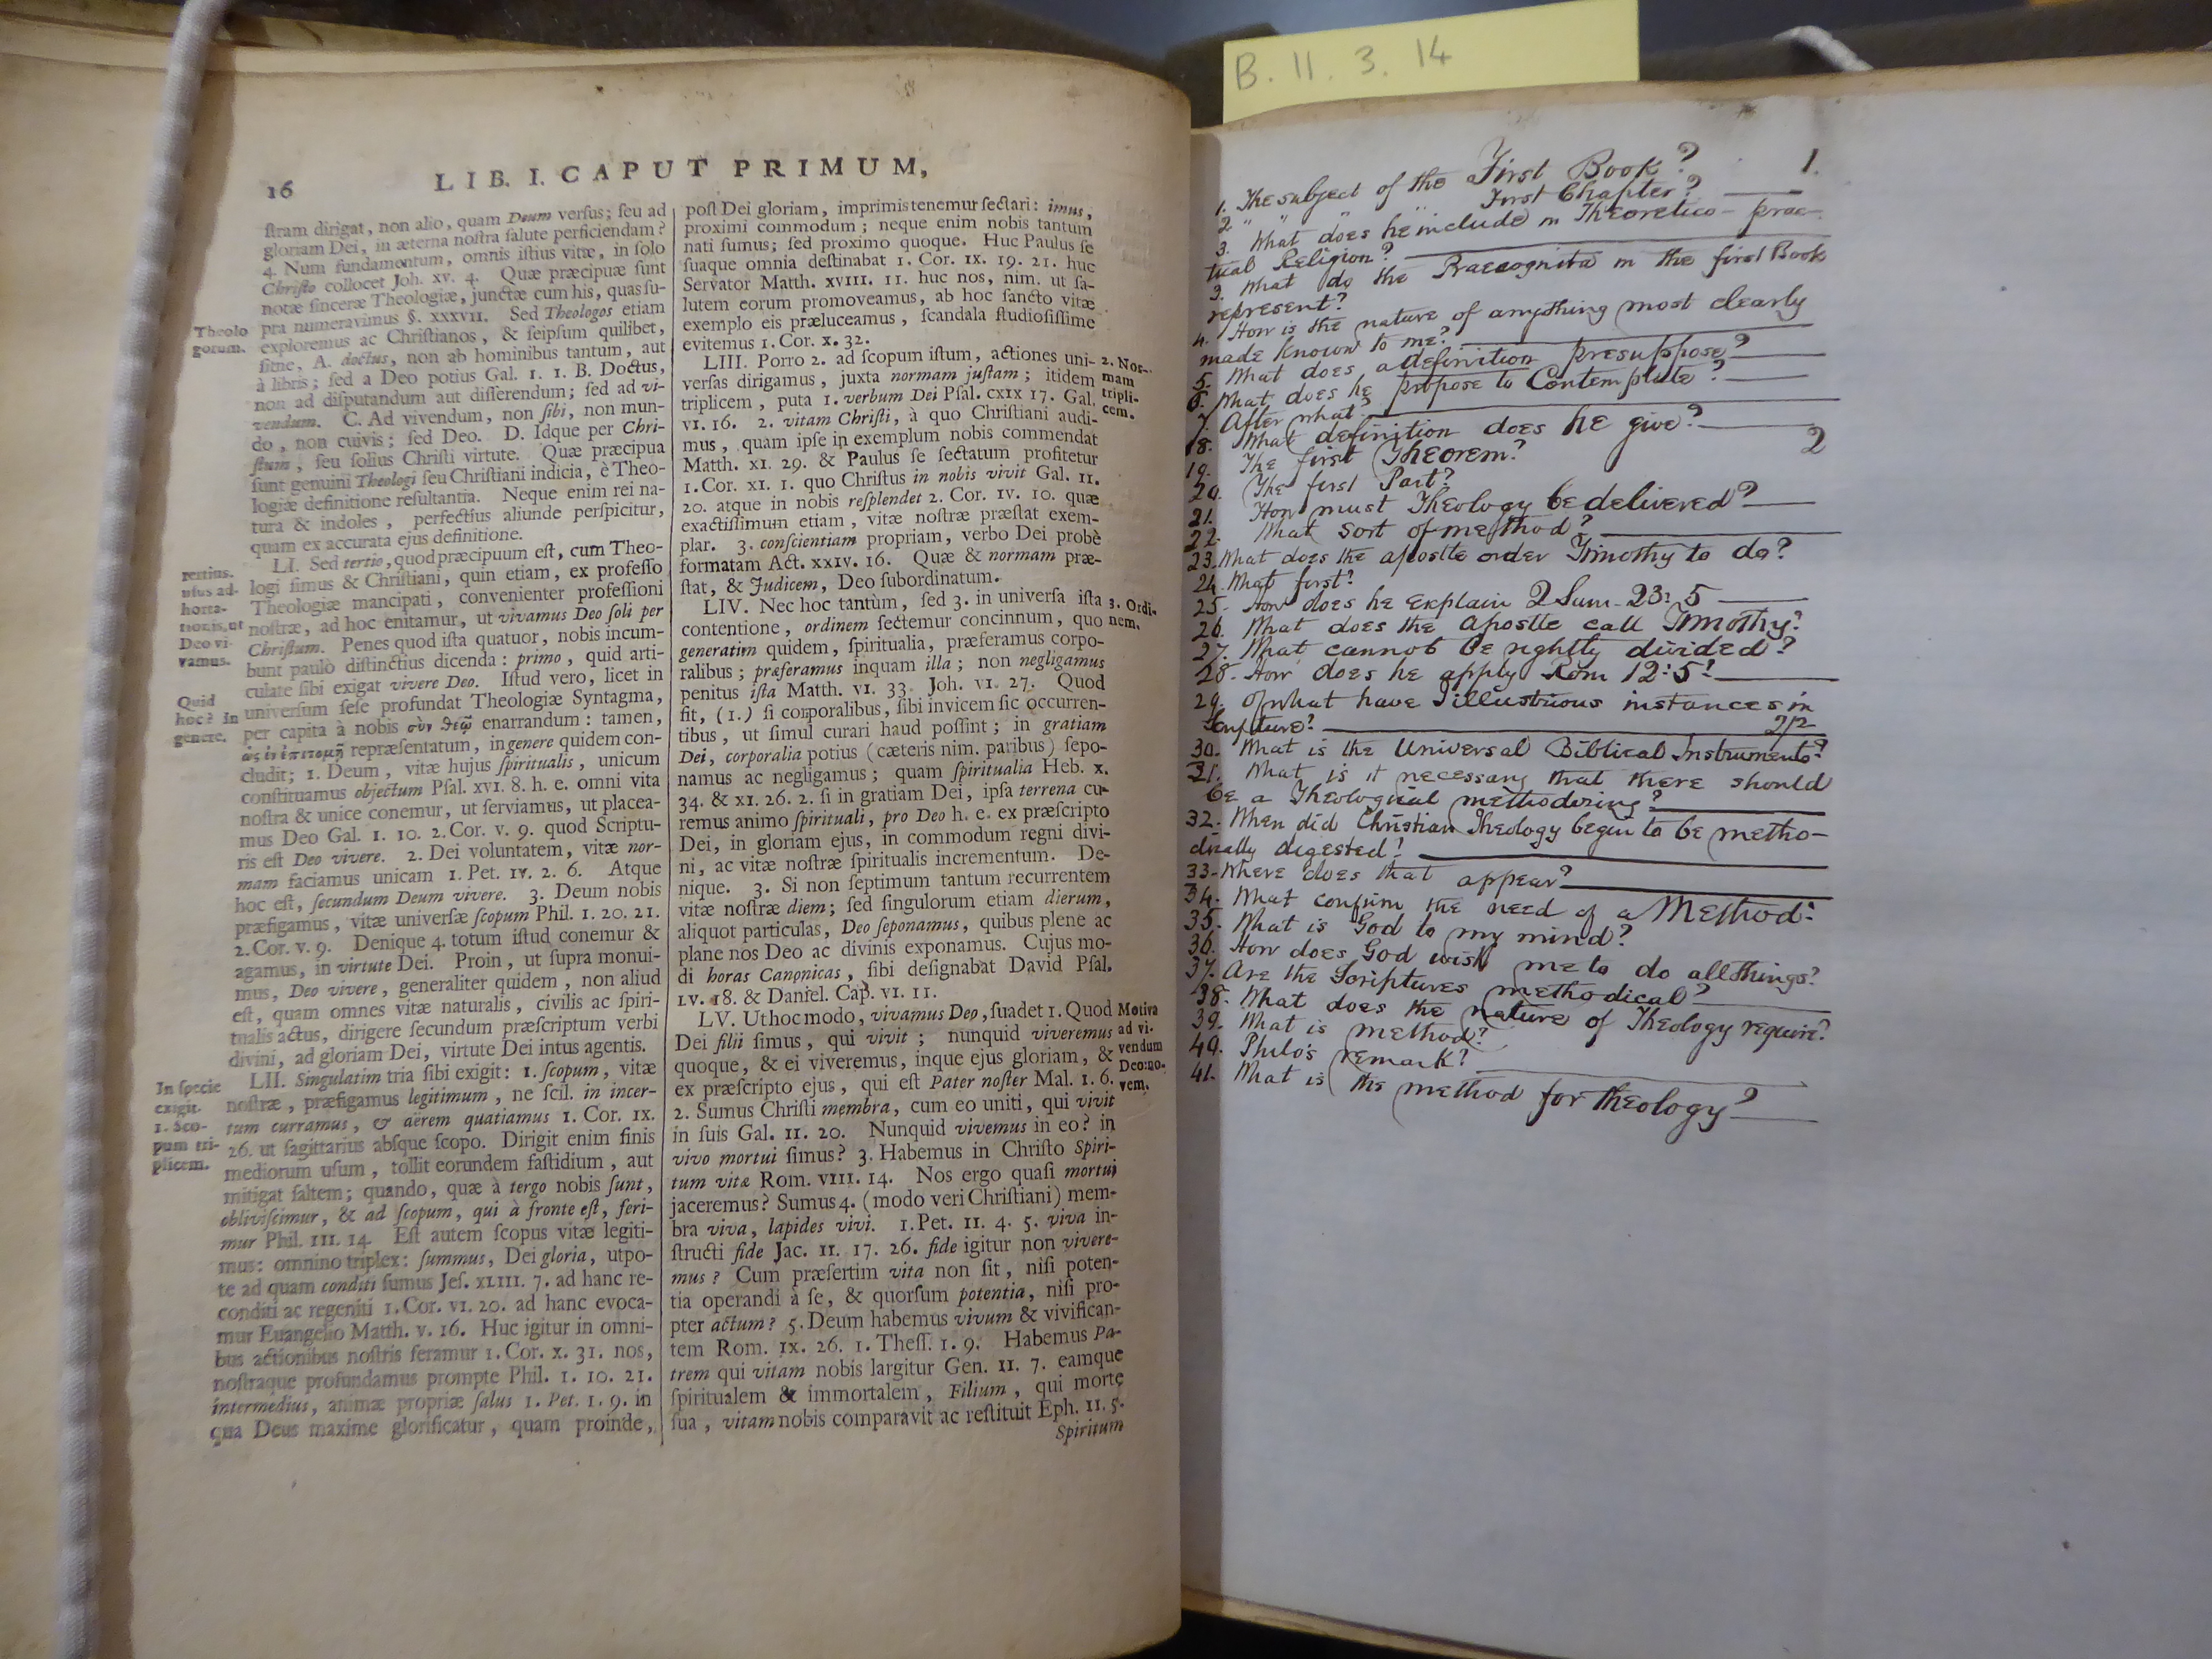 16
LIB. I. CAPUT PRIMUM,
ſtram dirigat, non alio, quam Deum verſus; ſeu ad
gloriam Dei, in æterna noſtra ſalute perficiendam?
4. Num fundamentum, omnis iſtius vitæ, in ſolo
Chriſto collocet Joh. xv. 4. Quæ præcipuæ ſunt
notæ ſinceræ Theologiæ, junctæ cum his, quas ſu-
pra numeravimus §. xxxvii. Sed Theologos etiam
exploremus ac Chriſtianos, & ſeipſum quilibet,
ſitne, A. doctus, non ab hominibus tantum, aut
à libris; ſed a Deo potius Gal. 1. 1. B. Doctus,
non ad diſputandum aut diſſerendum; ſed ad vi-
vendum. C. Ad vivendum, non ſibi, non mun-
do, non cuivis; ſed Deo. D. Idque per Chri-
ſtum, ſeu ſolius Chriſti virtute. Quæ præcipua
ſunt genuini Theologi ſeu Chriſtiani indicia, è Theo-
logiæ definitione reſultantia. Neque enim rei na-
tura & indoles, perfectius aliunde perſpicitur,
quam ex accurata ejus definitione.
LI. Sed tertio, quod præcipuum eſt, cum Theo-
logi ſimus & Chriſtiani, quin etiam, ex profeſſo
Theologiæ mancipati, convenienter profeſſioni
noſtræ, ad hoc enitamur, ut vivamus Deo ſoli per
Chriſtum. Penes quod iſta quatuor, nobis incum-
bunt paulò diſtinctius dicenda: primo, quid arti-
culate ſibi exigat vivere Deo. Iſtud vero, licet in
univerſum ſeſe profundat Theologiæ Syntagma,
per capita à nobis σὺν θεῷ enarrandum: tamen,
ὡς ἐν ἐπιτομῇ repræſentatum, in genere quidem con-
cludit; 1. Deum, vitæ hujus ſpiritualis, unicum
conſtituamus objectum Pſal. xvi. 8. h. e. omni vita
noſtra & unice conemur, ut ſerviamus, ut placea-
mus Deo Gal. 1. 10. 2. Cor. v. 9. quod Scriptu-
ris eſt Deo vivere. 2. Dei voluntatem, vitæ nor-
mam faciamus unicam 1. Pet. iv. 2. 6. Atque
hoc eſt, ſecundum Deum vivere. 3. Deum nobis
præfigamus, vitæ univerſæ ſcopum Phil. 1. 20. 21.
2. Cor. v. 9. Denique 4. totum iſtud conemur &
agamus, in virtute Dei. Proin, ut ſupra monui-
mus, Deo vivere, generaliter quidem, non aliud
eſt, quam omnes vitæ naturalis, civilis ac ſpiri-
tualis actus, dirigere ſecundum præſcriptum verbi
divini, ad gloriam Dei, virtute Dei intus agentis.
LII. Singulatim tria ſibi exigit: 1. ſcopum, vitæ
noſtræ, præfigamus legitimum, ne ſcil. in incer-
tum curramus, & aërem quatiamus 1. Cor. ix.
26. ut ſagittarius abſque ſcopo. Dirigit enim finis
mediorum uſum, tollit eorundem faſtidium, aut
mitigat ſaltem; quando, quæ à tergo nobis ſunt,
obliviſcimur, & ad ſcopum, qui à fronte eſt, feri-
mur Phil. iii. 14. Eſt autem ſcopus vitæ legiti-
mus: omnino triplex: ſummus, Dei gloria, utpo-
te ad quam conditi ſumus Jeſ. xliii. 7. ad hanc re-
conditi ac regeniti 1. Cor. vi. 20. ad hanc evoca-
mur Euangelio Matth. v. 16. Huc igitur in omni-
bus actionibus noſtris feramur 1. Cor. x. 31. nos,
noſtraque profundamus prompte Phil. 1. 10. 21.
intermedius, animæ propriæ ſalus 1. Pet. 1. 9. in
qua Deus maxime glorificatur, quam proinde,
Theolo
gorum.
tertius.
uſus ad-
horta-
tionis, ut
Deo vi-
vamus.
Quid
hoc? In
genere.
In ſpecie
exigit.
1. Sco-
pum tri-
plicem.
poſt Dei gloriam, imprimis tenemur ſectari: imus,
proximi commodum; neque enim nobis tantum
nati ſumus; ſed proximo quoque. Huc Paulus ſe
ſuaque omnia deſtinabat 1. Cor. ix. 19. 21. huc
Servator Matth. xviii. 11. huc nos, nim. ut ſa-
lutem eorum promoveamus, ab hoc ſancto vitæ
exemplo eis præluceamus, ſcandala ſtudioſiſſime
evitemus 1. Cor. x. 32.
LIII. Porro 2. ad ſcopum iſtum, actiones uni-
verſas dirigamus, juxta normam juſtam; itidem
triplicem, puta 1. verbum Dei Pſal. cxix 17. Gal.
vi. 16. 2. vitam Chriſti, à quo Chriſtiani audi-
mus, quam ipſe in exemplum nobis commendat
Matth. xi. 29. & Paulus ſe ſectatum profitetur
1. Cor. xi. 1. quo Chriſtus in nobis vivit Gal. ii.
20. atque in nobis reſplendet 2. Cor. iv. 10. quæ
exactiſſimum etiam, vitæ noſtræ præſtat exem-
plar. 3. conſcientiam propriam, verbo Dei probè
formatam Act. xxiv. 16. Quæ & normam præ-
ſtat, & Judicem, Deo ſubordinatum.
LIV. Nec hoc tantùm, ſed 3. in univerſa iſta
contentione, ordinem ſectemur concinnum, quo
generatim quidem, ſpiritualia, præferamus corpo-
ralibus; præferamus inquam illa; non negligamus
penitus iſta Matth. vi. 33. Joh. vi. 27. Quod
fit, (1.) ſi corporalibus, ſibi invicem ſic occurren-
tibus, ut ſimul curari haud poſſint; in gratiam
Dei, corporalia potius (cæteris nim. paribus) ſepo-
namus ac negligamus; quam ſpiritualia Heb. x.
34. & xi. 26. 2. ſi in gratiam Dei, ipſa terrena cu-
remus animo ſpirituali, pro Deo h. e. ex præſcripto
Dei, in gloriam ejus, in commodum regni divi-
ni, ac vitæ noſtræ ſpiritualis incrementum. De-
nique. 3. Si non ſeptimum tantum recurrentem
vitæ noſtræ diem; ſed ſingulorum etiam dierum,
aliquot particulas, Deo ſeponamus, quibus plene ac
plane nos Deo ac divinis exponamus. Cujus mo-
di horas Canonicas, ſibi deſignabat David Pſal.
lv. 18. & Daniel. Cap. vi. 11.
LV. Ut hoc modo, vivamus Deo, ſuadet 1. Quod
Dei filii ſimus, qui vivit; nunquid viveremus
quoque, & ei viveremus, inque ejus gloriam, &
ex præſcripto ejus, qui eſt Pater noſter Mal. 1. 6.
2. Sumus Chriſti membra, cum eo uniti, qui vivit
in ſuis Gal. ii. 20. Nunquid vivemus in eo? in
vivo mortui ſimus? 3. Habemus in Chriſto Spiri-
tum vitæ Rom. viii. 14. Nos ergo quaſi mortui
jaceremus? Sumus 4. (modo veri Chriſtiani) mem-
bra viva, lapides vivi. 1. Pet. ii. 4. 5. viva in-
ſtructi fide Jac. ii. 17. 26. fide igitur non vivere-
mus? Cum præſertim vita non ſit, niſi poten-
tia operandi à ſe, & quorſum potentia, niſi pro-
pter actum? 5. Deum habemus vivum & vivifican-
tem Rom. ix. 26. 1. Theſſ. 1. 9. Habemus Pa-
trem qui vitam nobis largitur Gen. ii. 7. eamque
ſpiritualem & immortalem, Filium, qui morte
ſua, vitam nobis comparavit ac reſtituit Eph. ii. 5.
Spiritum
2. Nor-
mam
tripli-
cem.
3. Ordi-
nem.
Motiva
ad vi-
vendum
Deo: no-
vem.
B. 11. 3. 14
1.
1. The subject of the First Book?
2. " " " " First Chapter?
3. What does he include in Theoretico-prac-
tical Religion?
3. What do the Praecognita in the first Book
represent?
4. How is the nature of anything most clearly
made known to me?
5. What does a definition presuppose?
6. What does he propose to Contemplate?
7. After what?
18. What definition does he give?
2
19. The first Theorem?
20. The first Part?
21. How must Theology be delivered?
22. What sort of method?
23. What does the apostle order Timothy to do?
24. What first?
25. How does he explain 2 Sam. 23: 5
26. What does the Apostle call Timothy?
27. What cannot be rightly divided?
28. How does he apply Rom 12: 5?
29. Of what have I illustrious instances in
Scripture?
30. What is the Universal Biblical Instruments?
31. What is it necessary that there should
be a Theological methodizing?
32. When did Christian Theology begin to be metho-
dically digested?
33. Where does that appear?
34. What confirm the need of a Method?
35. What is God to my mind?
36. How does God wish me to do all things?
37. Are the Scriptures methodical?
38. What does the nature of Theology require?
39. What is method?
40. Philo's remark?
41. What is the method for theology?